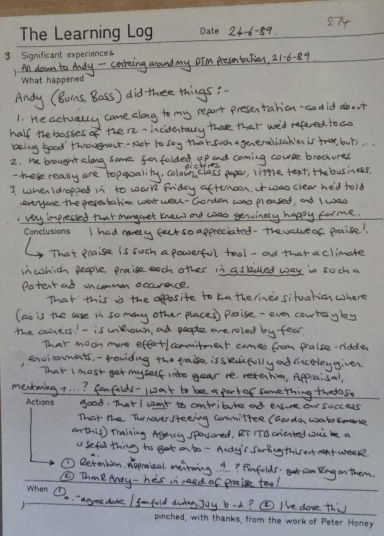 274
The Learning Log Date 26-6-89.
3 Significant experiences
, All down to Andy - centering around my DTM presentation, 21-6-89.
What happened
Andy (Burns, Bass) did three things :-
1. He actually came along to my report presentation - so did about
half the bosses of the 12 - incidentally those that we'd referred to as
being good throughout. Not to say that such a generalisation is true, but,...
2. He brought along some fan folded, up and coming course brochures
pictures
- these really are top quality, colour, class paper, little text, the business.
3. when I dropped in to work Friday afternoon, it was clear he'd told
everyone the presentation went well - Gordon was pleased, and I was
, very impressed that Margaret knew and was genuinely happy for me.
Conclusions I had rarely felt so appreciated - the value of praise!
That praise is such a powerful tool - and that a climate
in which people praise each other in a skilled way is such a
potent and uncommon occurence.
That this is the opposite to Katherine's situation where
(as is the case in so many other places) praise - even courtesy by
the owners! - is unknown, and people are ruled by fear.
That much more effort/commitment comes from praise-ridden
, environments, - providing the praise is skilfully and sincerely given.
That I must get myself into gear re. retention, Appraisal,
mentoring + ....? fanfolds - I want to be a part of something that's so
Actions good. That I want to contribute and ensure our success
That the Turnover steering committee (Gordon wants some
on this) Training Agency sponsored, RT ITB oriented would be a
useful thing to get onto - Andy's sorting this out next week.
① Retention, Appraisal, mentoring + ....? Fanfolds - get working on them.
② Thank Andy - he's in need of praise too!
When ① a. - agree date / fanfold during July b-d? ② I've done this
pinched, with thanks, from the work of Peter Honey